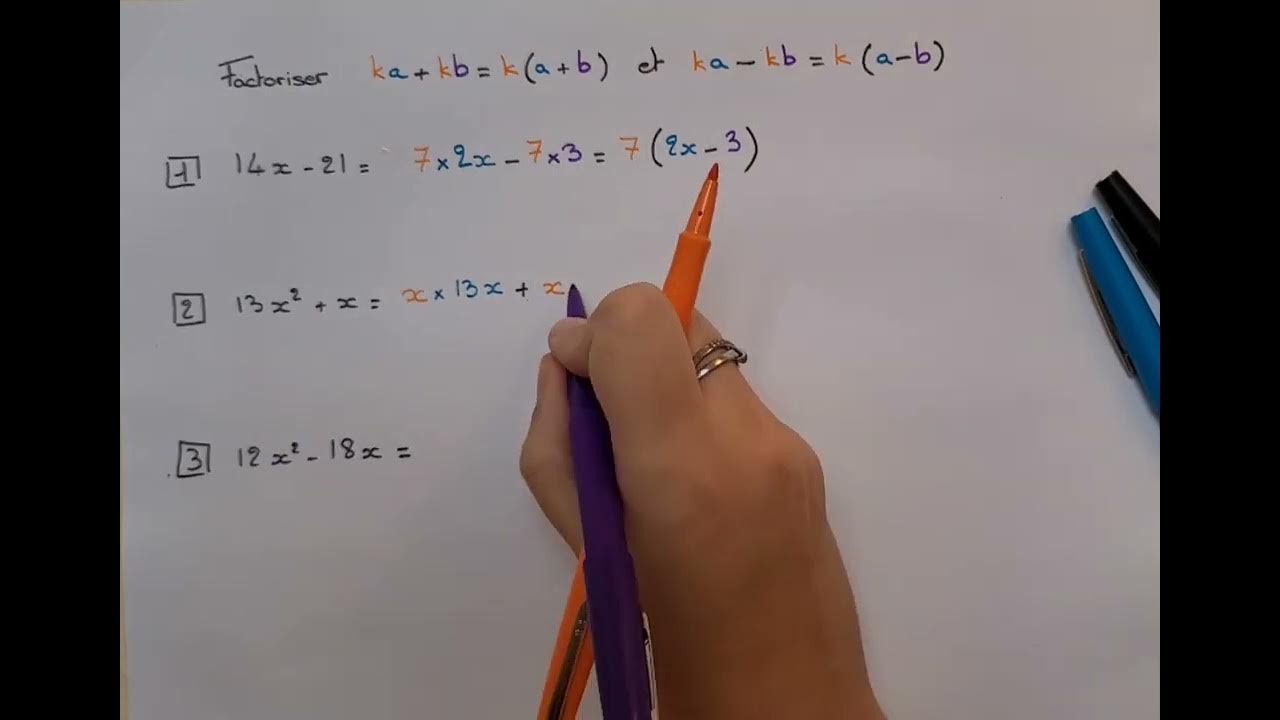 Factoriser ka + kb = k (a + b) et ka - kb = k (a - b)
1 14x - 21 = 7 × 2x - 7 × 3 = 7 (2x - 3)
2 13x² + x = x × 13x + x
3 12x² - 18x =